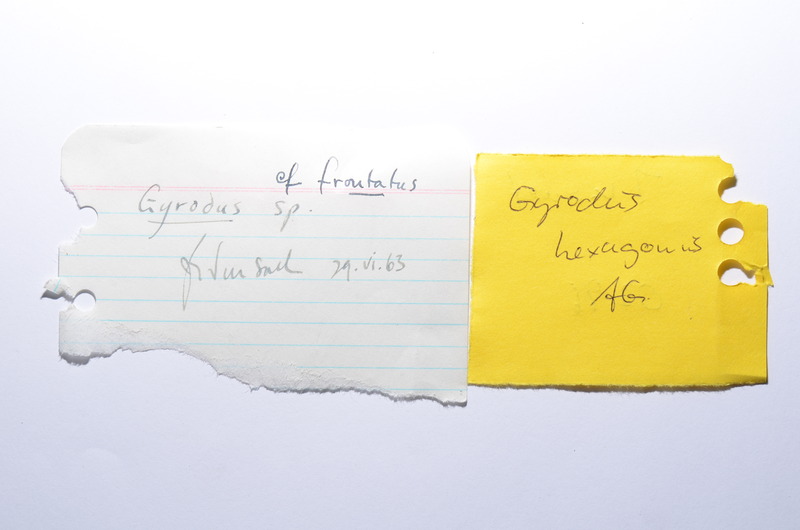 cf frontatus
Gyrodus sp.
29.vi.63
Gyrodus
hexagonus
AG.